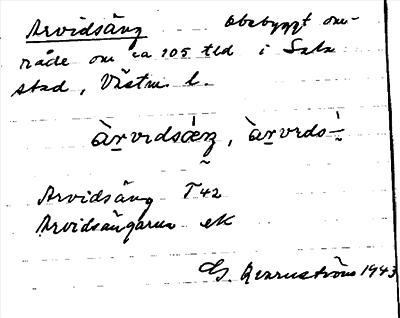 Arvidsäng obebyggt om-
råde om ca 105 tld i Sala
stad, Västm. l.
àrvidsáeŋ, àrvids-́
Arvidsäng T42
Arvidsängarna ek
G. 1943